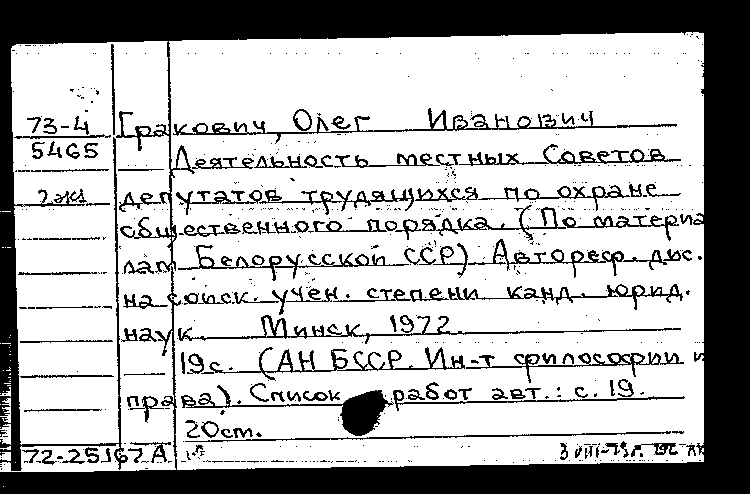 73-4 Гракович, Олег Иванович
5465 Деятельность местных Советов
2 экз депутатов трудящихся по охране
общественного порядка. (По материа
лам Белорусской ССР) Автореф. дис.
на соиск. учен. степени канд. юрид.
наук. Минск, 1972.
19с. (АН БССР. Ин-т философии и
права). Список работ авт.: с. 19.
20cm.
72-25167 А